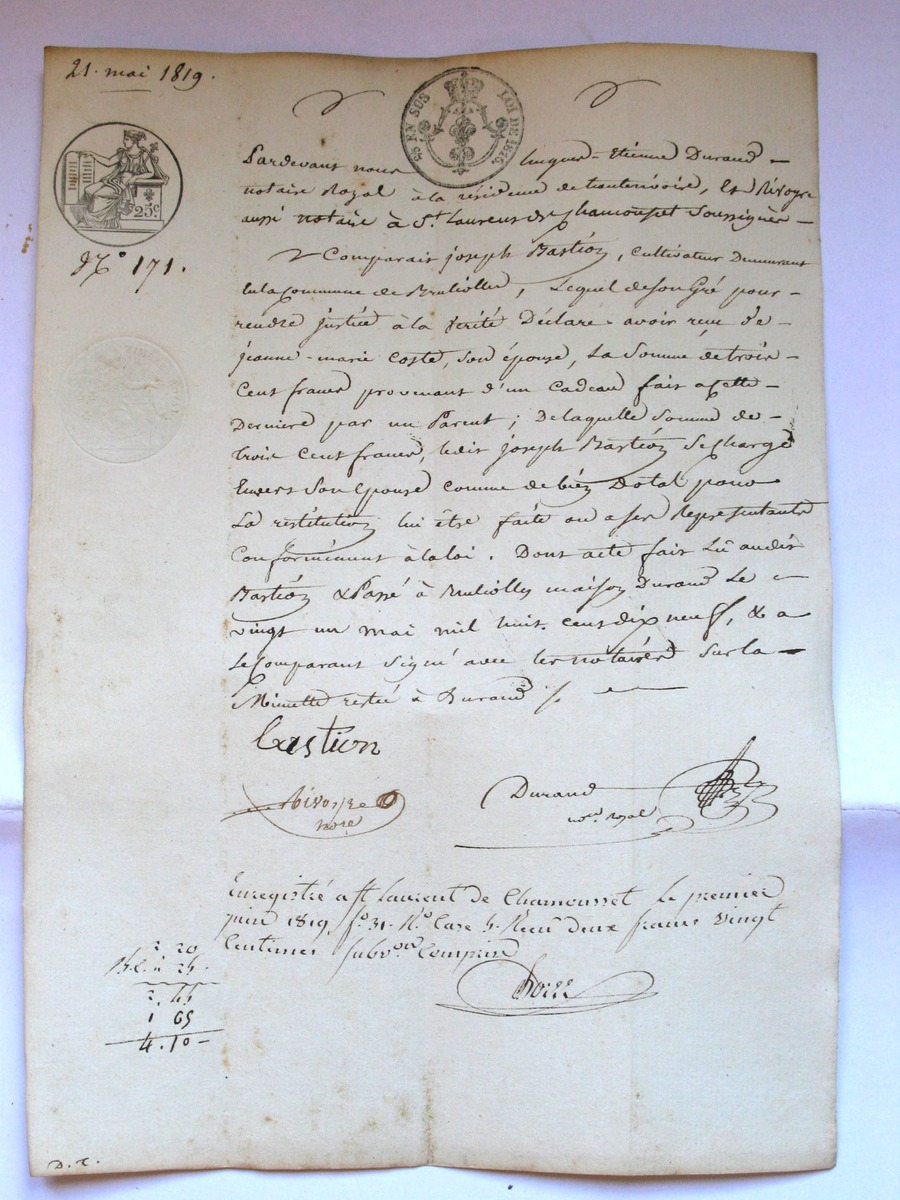 21. mai 1819.
25 EN SUS LOI DE 1816.
25c
N.° 171.
Pardevant nous hugues-Etienne Durand -
notaire Royal à la résidence de, Et Rivoyre
aussi notaire à St. Laurent de Chamousset Soussignés -
Comparait joseph Bastion, cultivateur Demeurant
en la Commune de Brulioles, Lequel de son Gré pour -
rendre justice à la Verité Déclare avoir reçu de -
jeanne-marie Coste, Son épouse, La Somme de trois -
Cent francs provenant d'un cadeau fait a Cette -
Derniere par un Parent ; De laquelle Somme de -
trois Cent francs, ledit joseph Bastion Se charge
Envers Son Epouse comme de bien Dotal pour
La restitution lui être faite ou a ses Representants
Conformément à la loi. Dont acte fait Lû audit
Bastion & Passé à Brulioles maison Durand Le -
vingt un mai mil huit cent dix neuf, & a
le Comparant Signé avec les notaires Sur la -
Minutte restée à Durand
bastion
Rivoyre
nore
Durand
nore. royal
Enregistré a St Laurent de Chamousset Le premier
juin 1819 fo. 31. Ro. Case 4. Reçu deux francs Vingt
Centimes Subvon. Comprise
2 20
25.
2, 45
1 65
4.10 -
D. C.